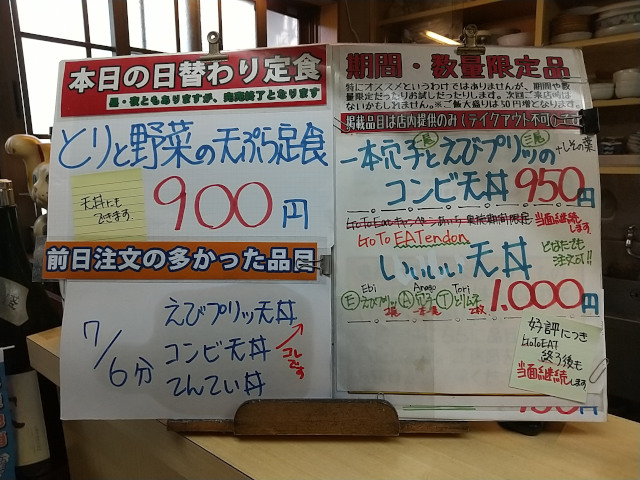 本日の日替わり定食
昼・夜ともありますが、完売終了となります
とりと野菜の天ぷら定食
天丼にも
できます
900円
前日注文の多かった品目
7/6分
えびプリッ天丼
コンビ天丼
てんてい丼
コレです
期間・数量限定品
特にオススメというわけではありませんが、期間や数
量限定だったりお試しだったりします。次回ご来店時は
ないかもしれません。※ご飯大盛りは50円増となります。
掲載品目は店内提供のみ(テイクアウト不可)
一尾
三尾
一本穴子とえびプリッの
+しその葉
コンビ天丼 950円
当面継続
します
GoTo EATendon
いいいい天丼
どなたでも
注文可!!
Ebi Anago Tori
E えびプリッ A 穴子 T とりムネ
2尾 一本 2枚
1,000円
好評につき
GoToEAT
終了後も
当面継続します